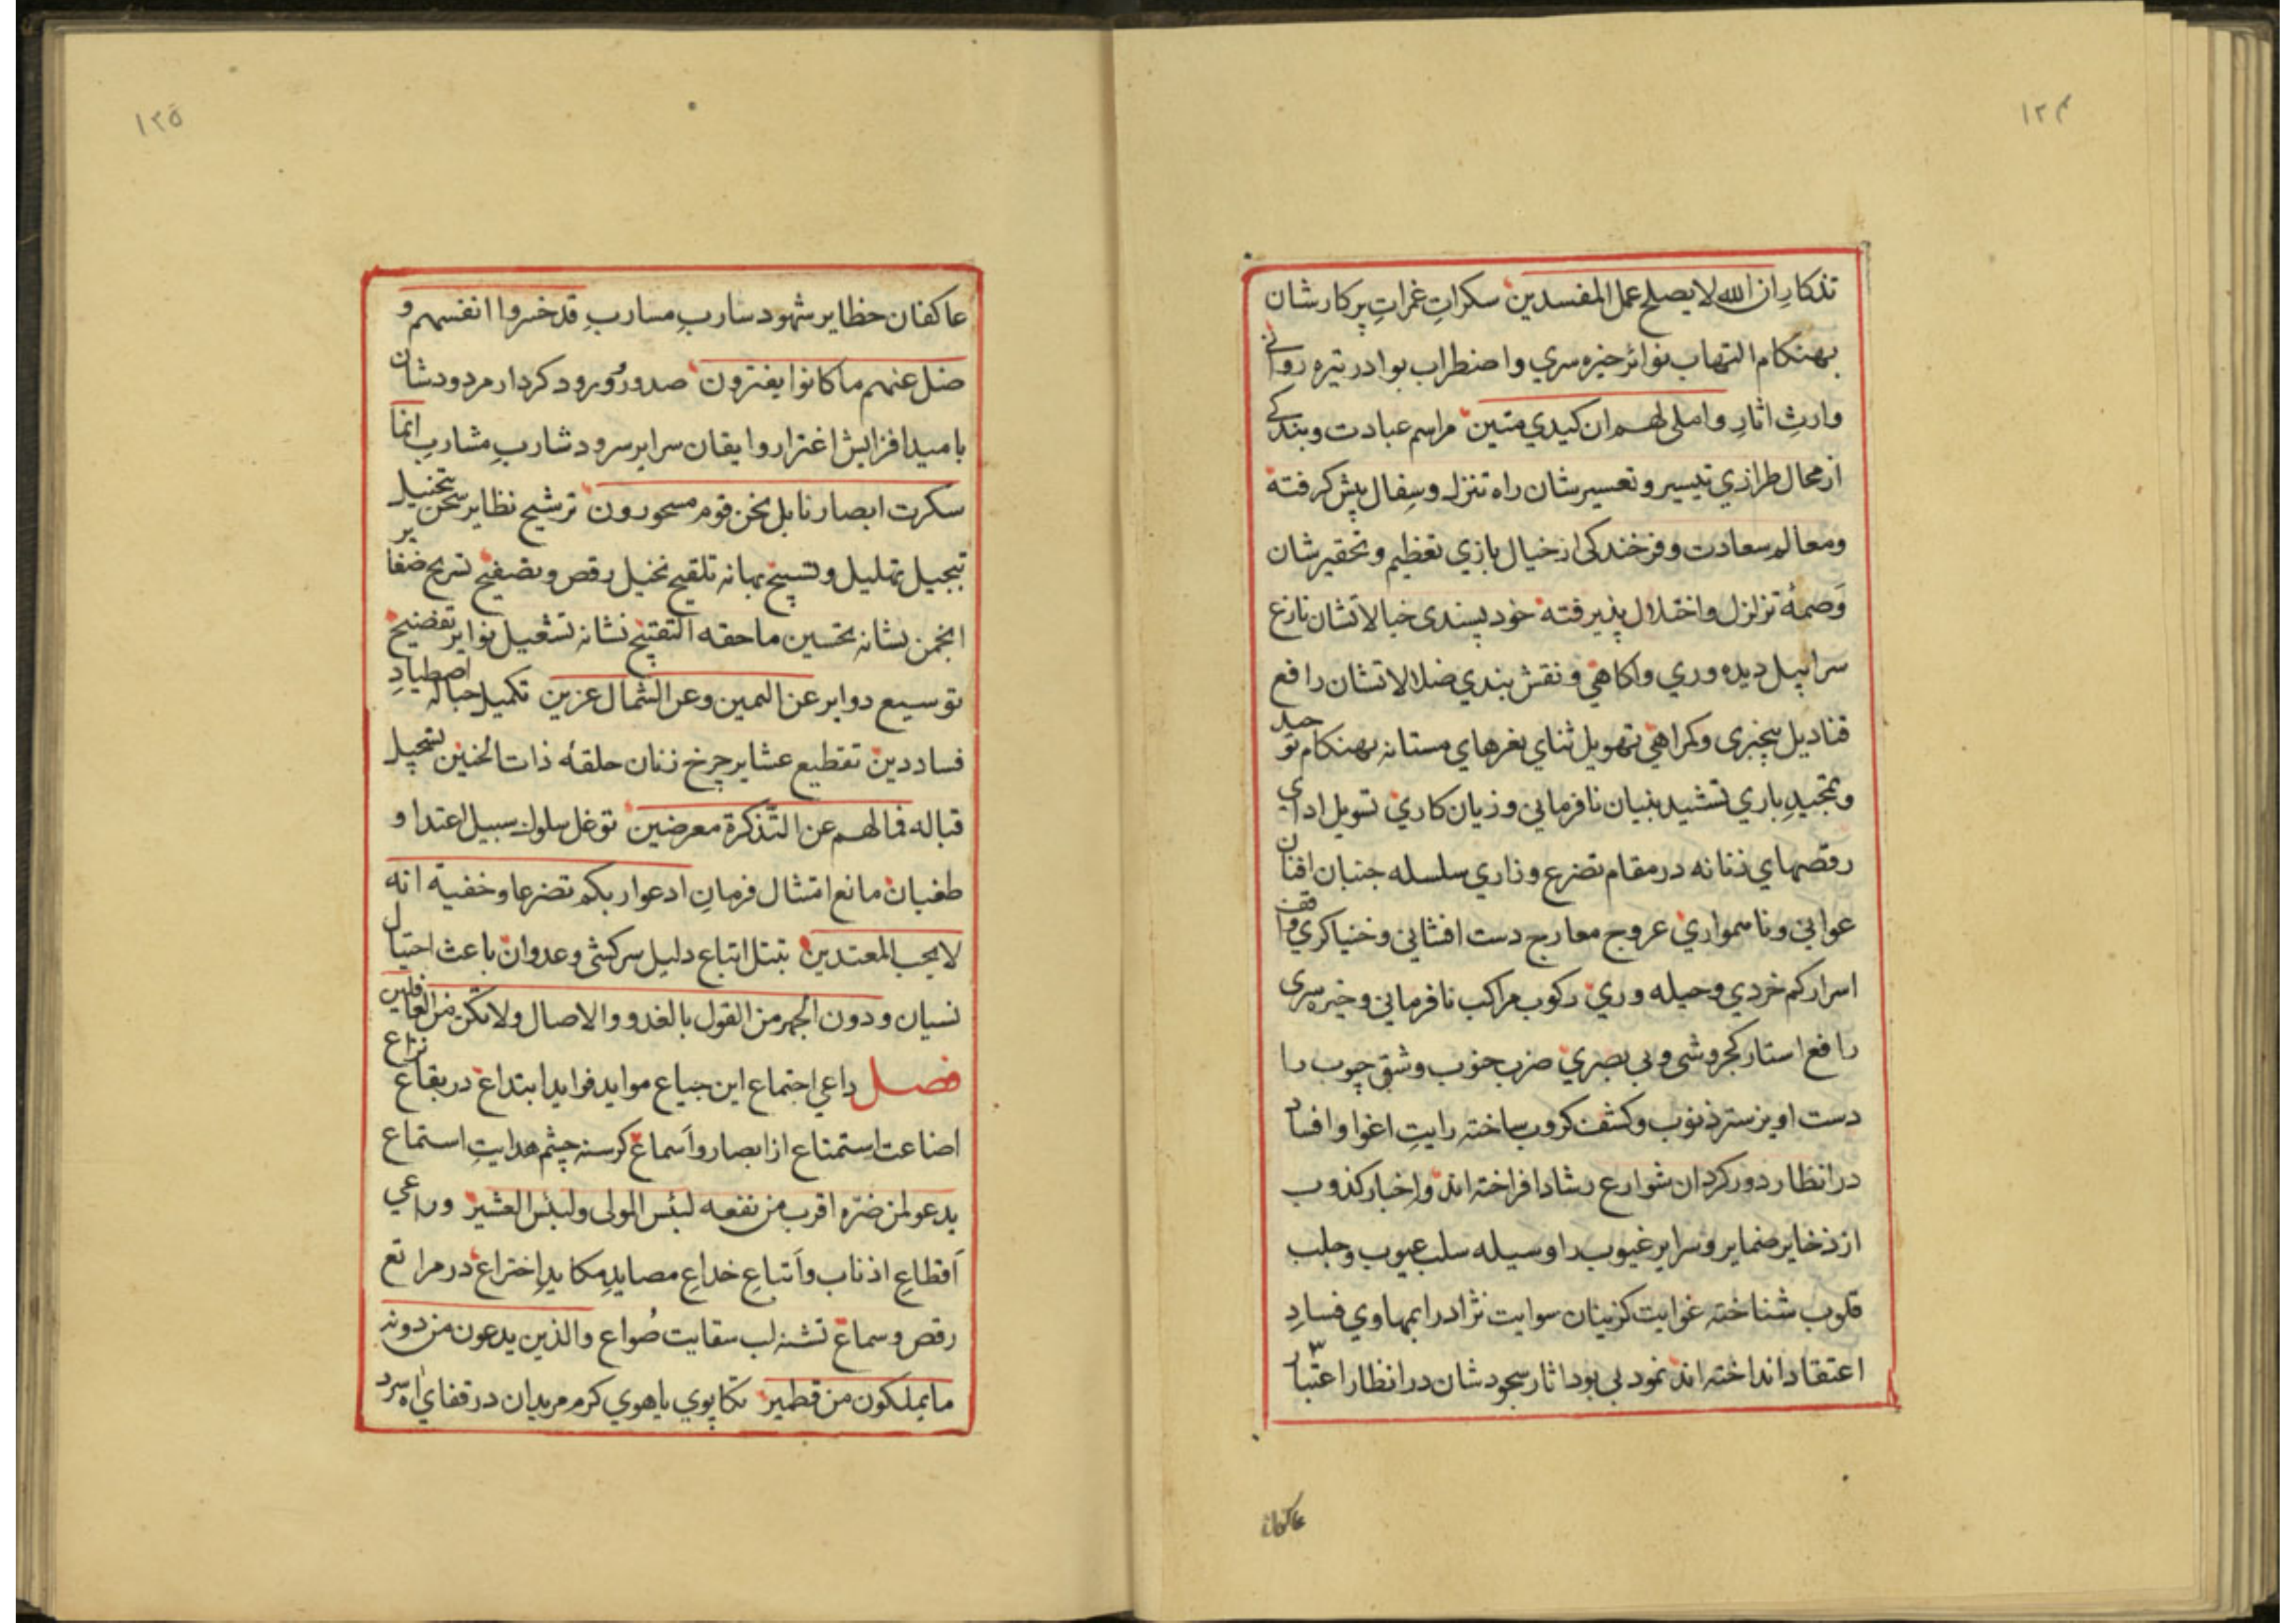 ١٢۴
تذکار ان الله لا یصلح عمل المفسدین سکراتِ غمراتِ پرکارشان
بهنکام التهاب نوائر خیره سري واضطراب بوادر تیره روانے
وارثِ اثارِ واملی لهم ان کیدي متین مراسم عبادت وبندکے
از محال طرازي تیسیر وتعسیرشان راه تنزل وسِفال پیش کرفته
ومعالم سعادت وفرخندکی از خیال بازي تعظیم وتحقیرشان
وَصمهٔ تزلزل واختلال پذیرفته خود پسندی خیالاتشان نازع
سرابیل دیده وري واکاهي ونقش بندي ضلالاتشان رافع
قنادیل بیخبری وکمراهي تهویل ثنای نغرهاي مستانه بهنکام توحید
وتمجیدِ باري تشیید بنیان نافرمانی وزیان کاري تسویل ادای
رقصهاي زنانه در مقام تضرع وزاري سلسله جنبان افنان
عوانی وناهمواري عروج معارج دست افشانی وخنیاکري واقف
اسرار کم خردي وحیله وري رکوب مراکب نافرمانی وخیره سری
رافع استار کجروشی وبی بصري ضرب جنوب وشق جیوب را
دست اویز ستر ذنوب وکشف کروب ساخته رایتِ اغوا وافساد
در انظار دور کردان شوارع رشاد افراخته اند واخبار کذوب
از ذخایر ضمایر وسرایر غیوب را وسیله سلب عیوب وجلب
قلوب شناخته غوایت کزینان سوایت نژاد را بمهاوي فسادِ
اعتقاد انداخته اند نمود بی بود اثار سجود شان در انظار اعتبار
عاکفان
١٢٥
عاکفان حظایر شهود ساربِ مساربِ قد خسروا انفسهم و
ضل عنهم ما کانوا یفترون صدور وورود کردار مردودشان
بامید افزایش اغترار وایقان سرایر سرود شاربِ مشاربِ انما
سکرت ابصارنا بل نحن قوم مسحورون ترشیح نظایر سخن تخییل
تبجیل تهلیل وتسبیح بهانه تلقیح نخیل رقص وتصفیح تسریح ضفایر
انجمن نشانه تحسین ما حقه التقبیح نشانه تشعیل نوایر تفضیح
توسیع دوایر عن الیمین وعن الشمال عزین تکمیل حباله اصطیادِ
فساد دین تقطیع عشایر چرخ زنان حلقهٔ ذات الحنین تسجیل
قباله فما لهم عن التذکرة معرضین توغل سلوك سبیل اعتدا و
طغیان مانع امتثال فرمانِ ادعوا ربکم تضرعا وخفیة انه
لا یحب المعتدین تبتل اتباع دلیل سرکشی وعدوان باعث احتیال
نسیان ودون الجهر من القول بالغدو والاصال ولا تکن من الغافلین
فصل داعي اجتماع این جیاع مواید فواید ابتداع در بقاع نزاع
اضاعت استمتاع از ابصار وأسماع کرسنه چشم هدایتِ استماع
یدعو لمن ضره اقرب من نفعه لبئس المولی ولبئس العشیر وراعي
أقطاعِ اذناب وأتباعِ خداعِ مصایدِ مکایدِ اختراع در مراتع
رقص وسماع تشنه لب سقایت صُواع والذین یدعون من دونه
ما یملکون من قطمیر تکاپوي یاهوي کرم مریدان در قفاي اه سرد